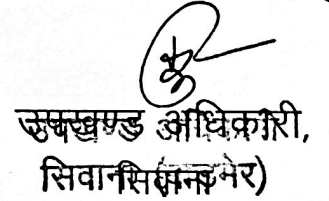 उपखण्ड अधिकारी,
सिवाना (बाड़मेर)